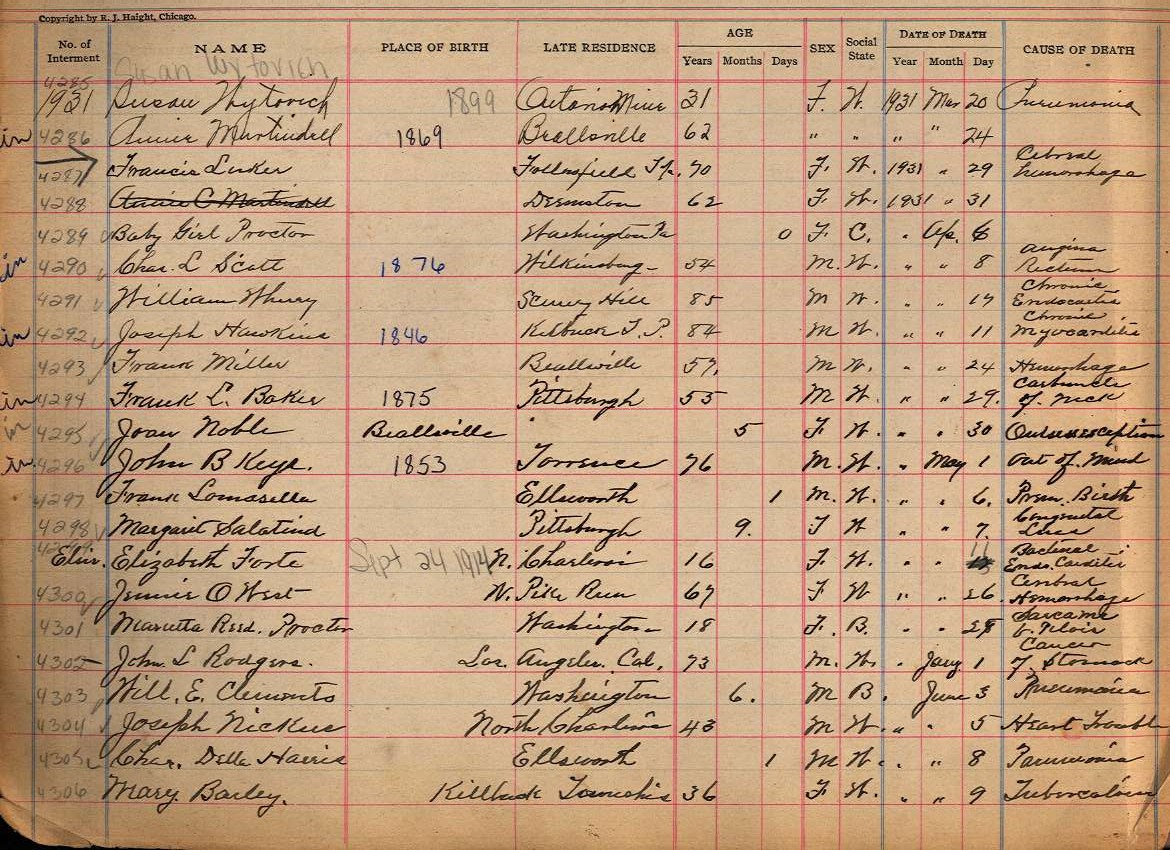 Copyright by R. J. Haight, Chicago.
No. of Interment NAME PLACE OF BIRTH LATE RESIDENCE AGE Years Months Days SEX Social State DATE OF DEATH Year Month Day CAUSE OF DEATH
Susan Wytovich
4285
1931 Susan Wytovich 1899 Ontario Mine 31 F. W. 1931 Mar 20 Pneumonia
in 4286 Annie Martindell 1869 Beallsville 62 " " " " 24
4287 Francis Luker Fallowfield Tp. 70 F. W. 1931 " 29 Hemorrhage
4288 Annie C Martindell Deemston 62 F. W. 1931 " 31
4289 Baby Girl Proctor Washington Pa 0 F. C. " Ap. 6
in 4290 Char. L Scott 1876 Wilkinsburg 54 M. W. " " 8 Angina
4291 William Whery Scenery Hill 85 M W. " " 17 Chronic
in 4292 Joseph Hawkins 1846 T. P. 84 M W. " " 11 Chronic Myocarditis
4293 Frank Miller Beallville 57. M W. " " 24 Hemorrhage
in 4294 Frank L. Baker 1875 Pittsburgh 55 M. W. " " 29. Carbuncle of Neck
in 4295 Joan Noble Beallsville 5 F W. " " 30
in. 4296 John B Keys. 1853 Torrence 76 M. W. " May 1 Out of Mind
4297 Frank Lomaselle Ellsworth 1 M. W. " " 6. Prem. Birth
4298 Margaret Salatind Pittsburgh 9. F W " " 7. Congenital
Elizabeth Forte Sept 24 1914 N. Charleroi 16 F. W. " " 11 Endo. Carditis
4300 Jennie O West W. Pike Run 67 F W " " 26. Cerebral Hemorrhage
4301 Marietta Reed. Procter Washington 18 F. B. " " 28
4302 John. L Rodgers. Los. Angeles. Cal. 73 M. W. " 1 Cancer of Stomach
4303 Will. E. Clements Washington 6. M B. " June 3 Pneumonia
4304 Joseph Nickus North Charleroi 43 M W. " " 5 Heart Trouble
4305 Char. Della Harris Ellsworth 1 M W. " " 8
4306 Mary Barley. Killbuck Township 36 F W. " " 9 Tuberculosis